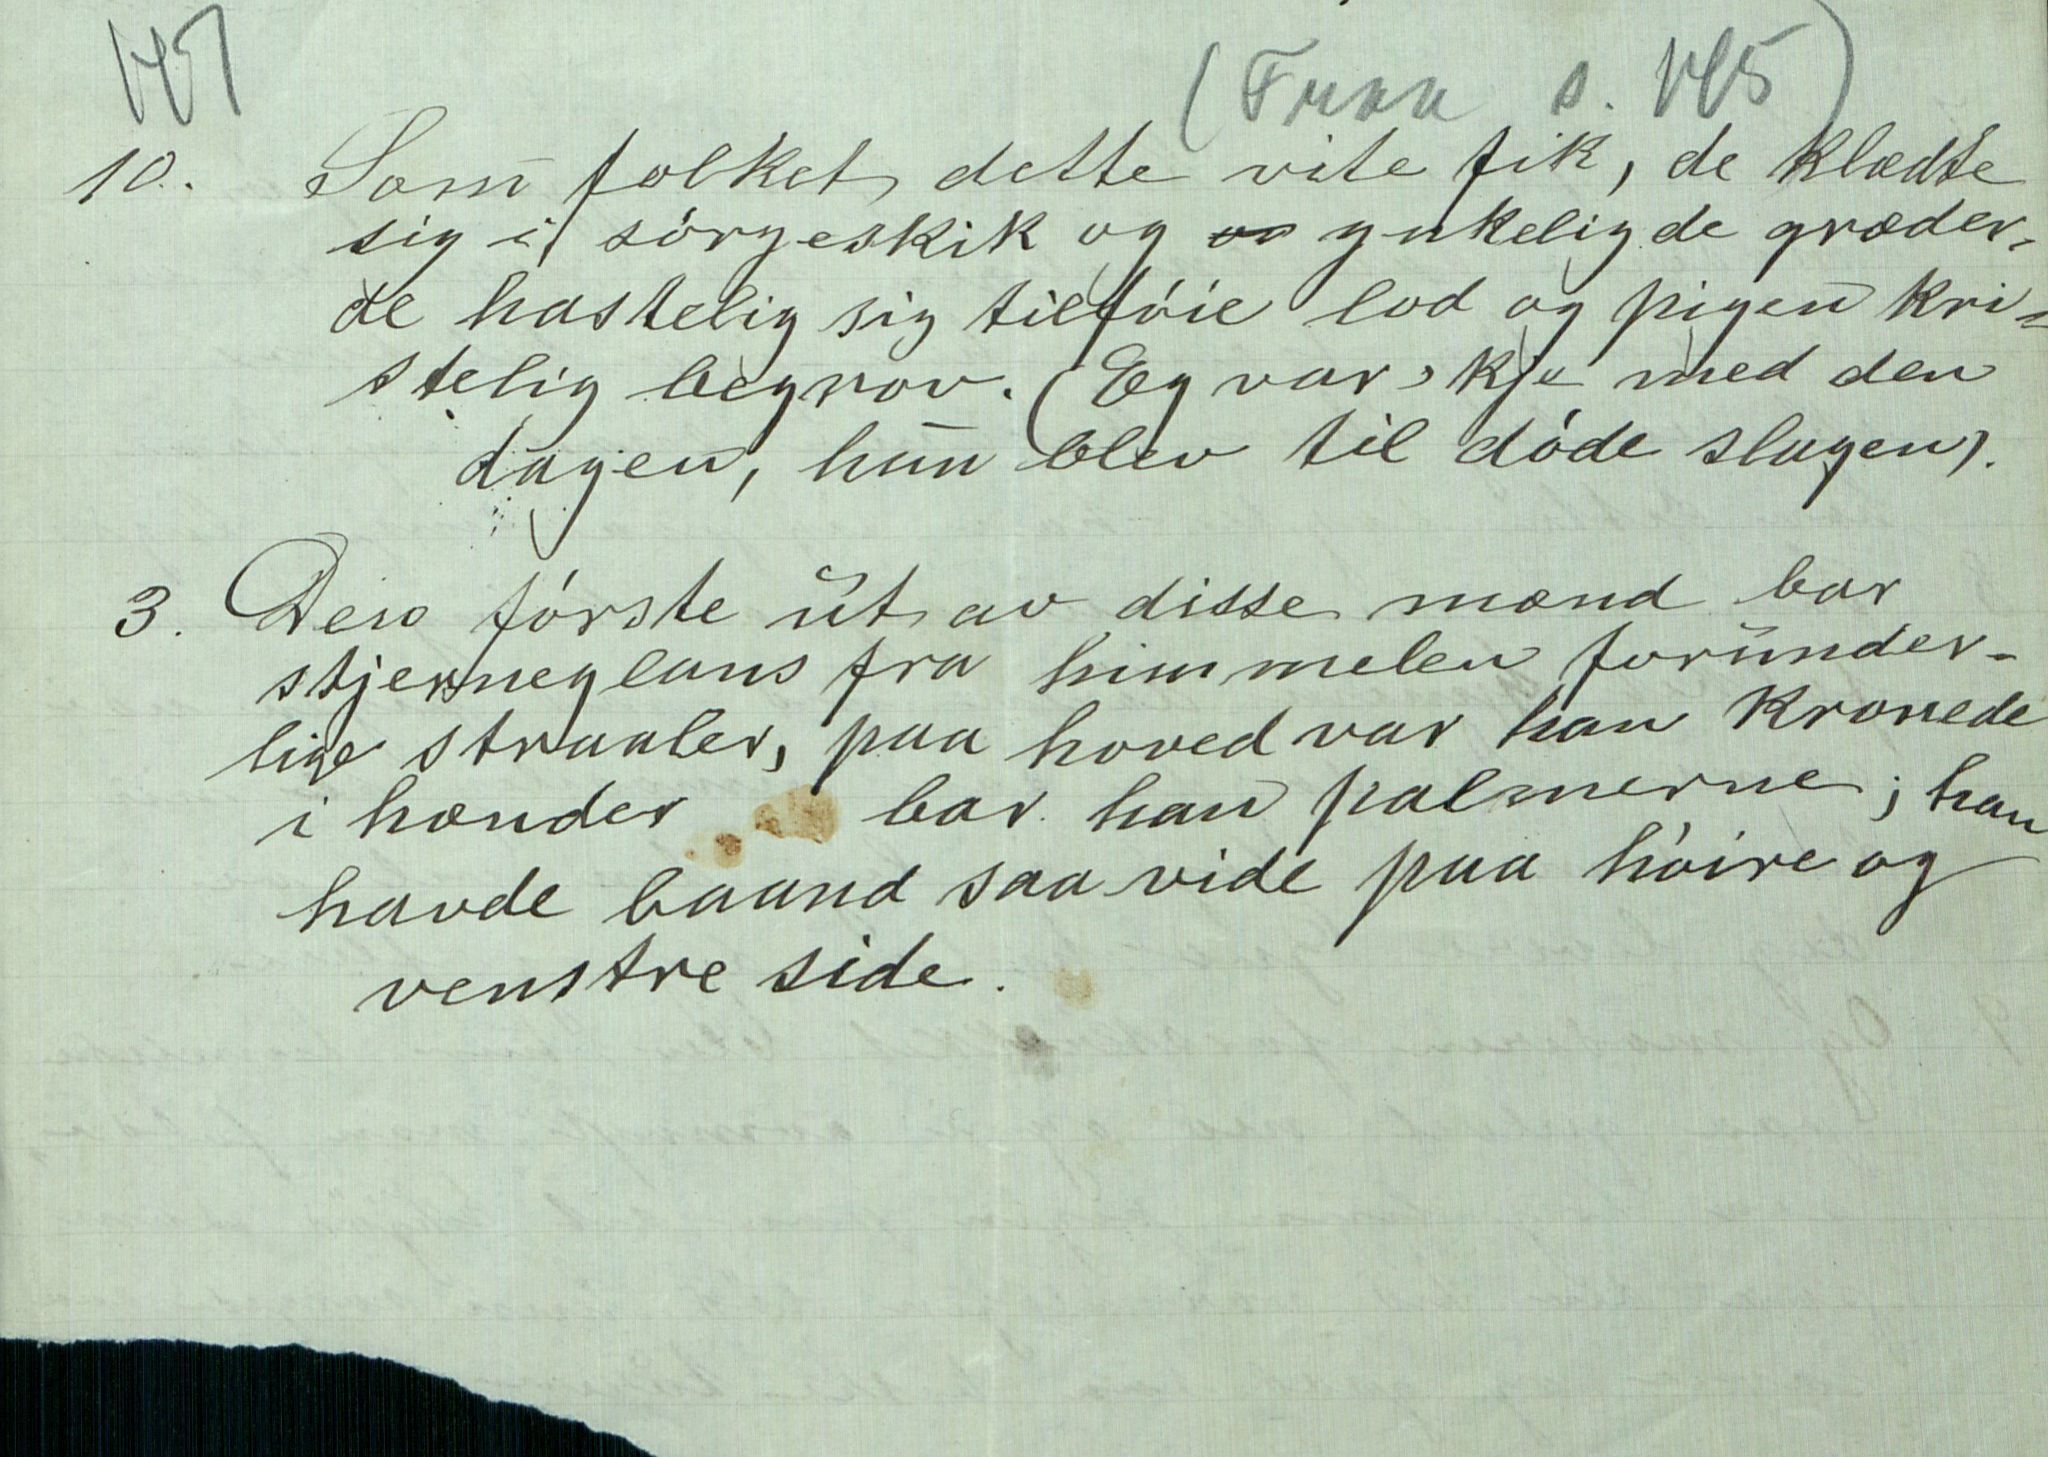 147
(Fraa s. 145)
10. Som folket dette vite fik, de klædte
sig i sörgeskik og ynkelig de græder,
de hastelig sig tilföie lod og pigen kri-
stelig begrov. (Eg var 'kje med den
dagen, hun blev til döde slagen).
3. Den förste ut av disse mænd bar
stjerneglans fra himmelen forunder-
lige straaler, paa hoved var han kronede
i hænder bar han palmerne; han
havde baand saa vide paa höire og
venstre side.